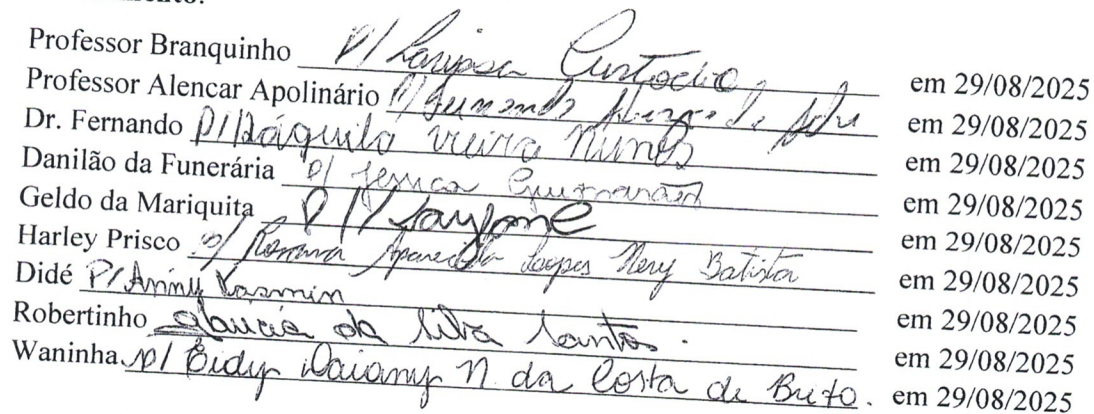 Professor Branquinho P/ Larissa Custódio em 29/08/2025
Professor Alencar Apolinário P/ Fernanda em 29/08/2025
Dr. Fernando P/ Ráquila Vieira Nunes em 29/08/2025
Danilão da Funerária P/ Jessica Guimarães em 29/08/2025
Geldo da Mariquita P/ em 29/08/2025
Harley Prisco p/ Rosana Aparecida Lopes Nery Batista em 29/08/2025
Didé P/ Anny Yasmin em 29/08/2025
Robertinho Glaucia da Silva Santos. em 29/08/2025
Waninha p/ Eidy Daiany N. da Costa de Brito. em 29/08/2025